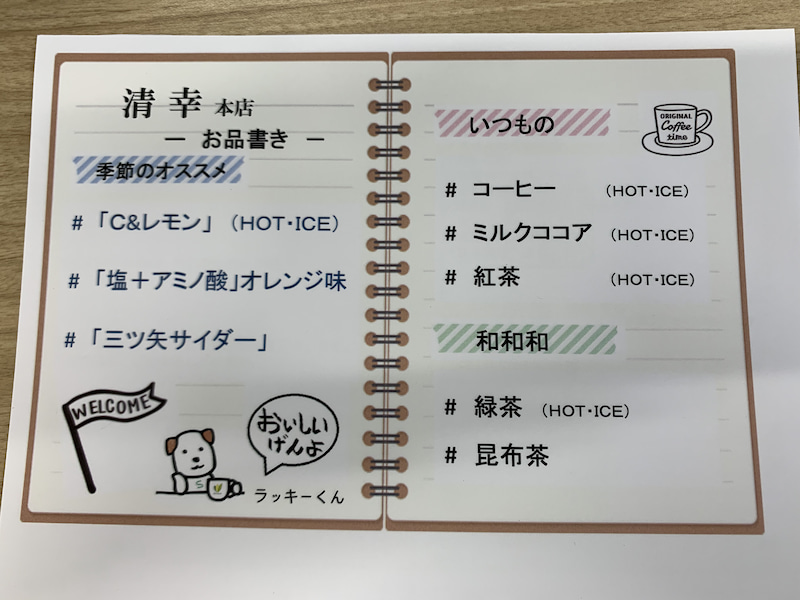 清幸 本店
ー お品書き ー
季節のオススメ
# 「C&レモン」 (HOT・ICE)
# 「塩＋アミノ酸」オレンジ味
# 「三ツ矢サイダー」
WELCOME
おいしい
げんよ
S
ラッキーくん
いつもの
ORIGINAL
Coffee
time
# コーヒー (HOT・ICE)
# ミルクココア (HOT・ICE)
# 紅茶 (HOT・ICE)
和和和
# 緑茶 (HOT・ICE)
# 昆布茶